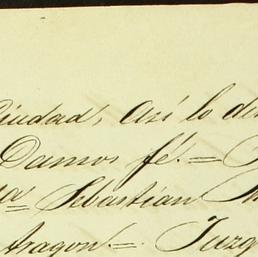 Ciudad, Así lo de
Damos fé. =
Sebastián
Aragon. = Juzg